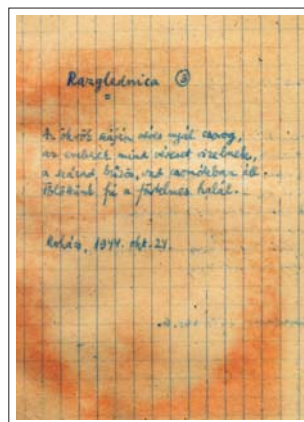 Razglednica (3)
Az ökrök száján véres nyál csorog,
az emberek mind véreset vizelnek,
a század bűzös, vad csomókban áll.
Fölöttünk fú a förtelmes halál.
Mohács, 1944. okt. 24.